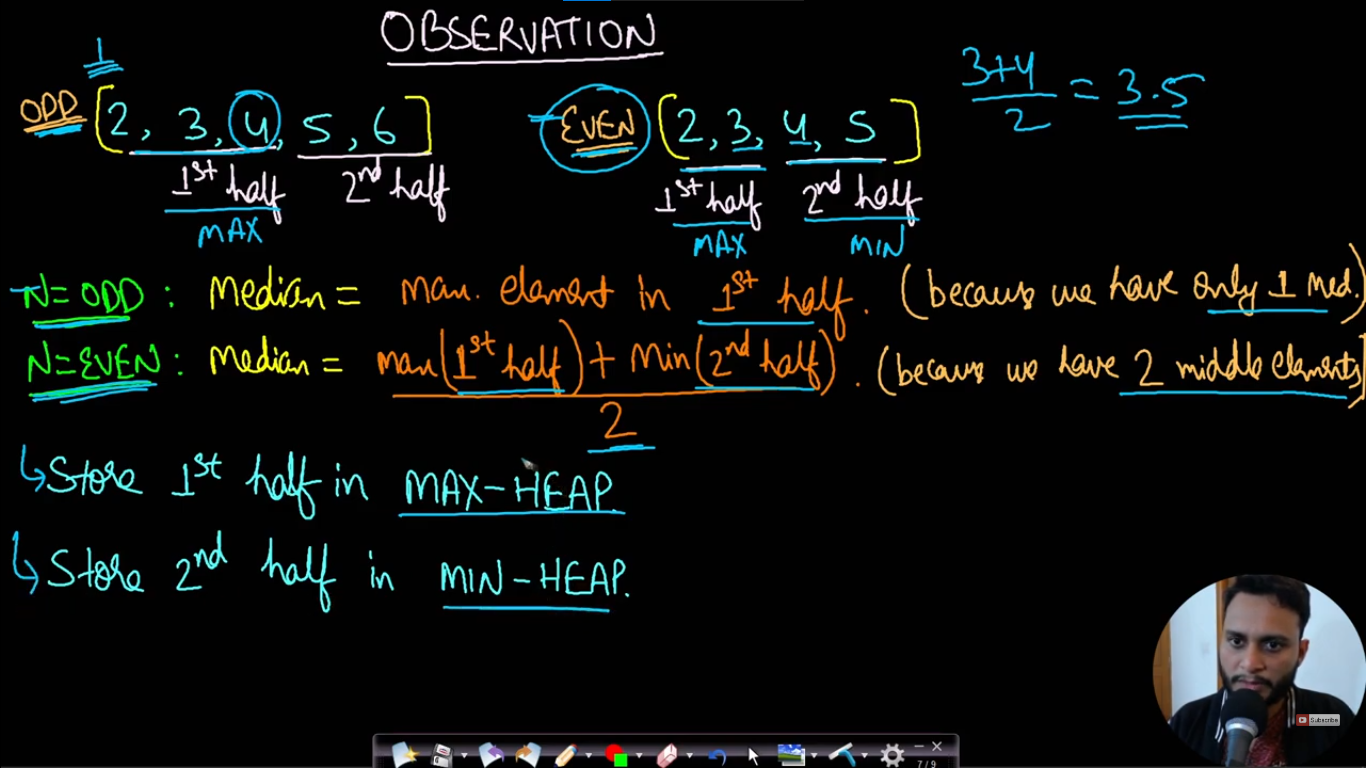 OBSERVATION
1
ODD [2, 3, 4, 5, 6]
1st half 2nd half
MAX
EVEN [2, 3, 4, 5]
1st half 2nd half
MAX MIN
3+4
2
= 3.5
N=ODD : Median = max. element in 1st half. (because we have only 1 med.)
N=EVEN : Median = max(1st half) + Min(2nd half) . (because we have 2 middle elements)
2
↳ Store 1st half in MAX-HEAP.
↳ Store 2nd half in MIN-HEAP.
Subscribe
7/9